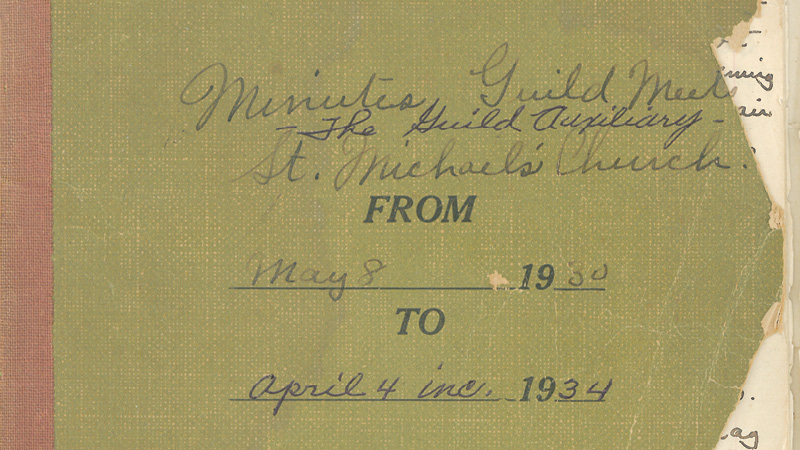 Minutes, Guild Meet
- The Guild Auxiliary -
St. Michael's Church.
FROM
May 8 1930
TO
April 4 inc. 1934